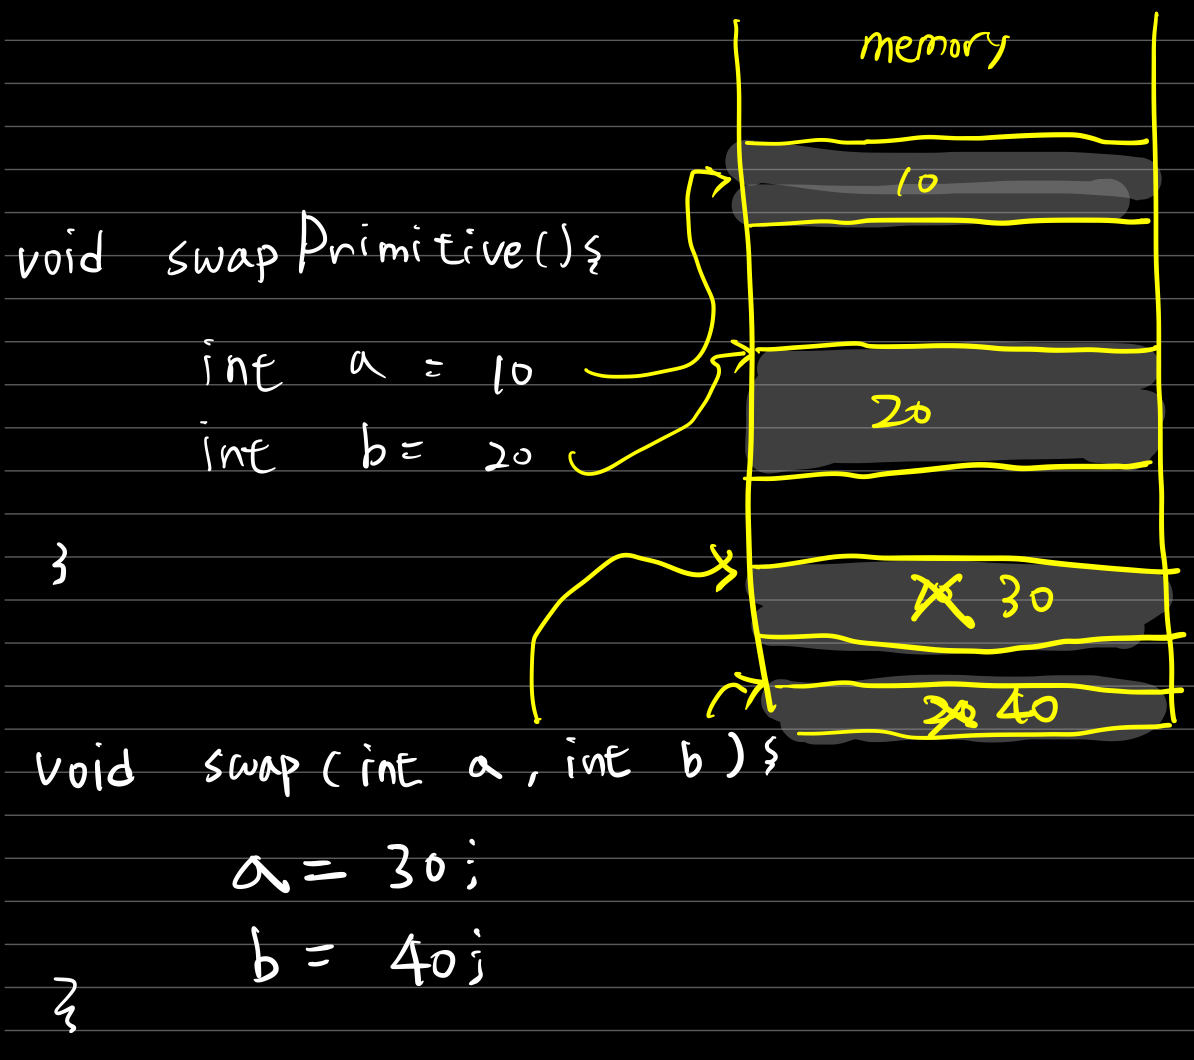 memory
10
void swapPrimitive(){
int a = 10
20
int b = 20
}
10 30
20 40
void swap(int a, int b){
a = 30;
b = 40;
}